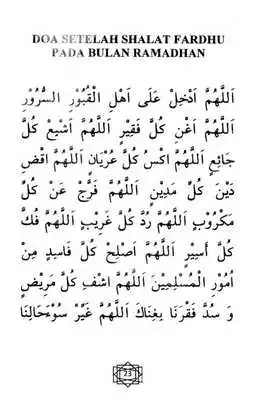 DOA SETELAH SHALAT FARDHU
PADA BULAN RAMADHAN
اَللّٰهُمَّ اَدْخِلْ عَلَى اَهْلِ الْقُبُوْرِ السُّرُوْرِ
اَللّٰهُمَّ اَغْنِ كُلَّ فَقِيْرٍ اَللّٰهُمَّ اَشْبِعْ كُلَّ
جَائِعٍ اَللّٰهُمَّ اكْسُ كُلَّ عُرْيَانٍ اَللّٰهُمَّ اقْضِ
دَيْنَ كُلِّ مَدِيْنٍ اَللّٰهُمَّ فَرِّجْ عَنْ كُلِّ
مَكْرُوْبٍ اَللّٰهُمَّ رُدَّ كُلَّ غَرِيْبٍ اَللّٰهُمَّ فُكَّ
كُلَّ اَسِيْرٍ اَللّٰهُمَّ اَصْلِحْ كُلَّ فَاسِدٍ مِنْ
اُمُوْرِ الْمُسْلِمِيْنَ اَللّٰهُمَّ اشْفِ كُلَّ مَرِيْضٍ
وَ سُدَّ فَقْرَنَا بِغِنَاكَ اَللّٰهُمَّ غَيِّرْ سُوْءَحَالِنَا
23